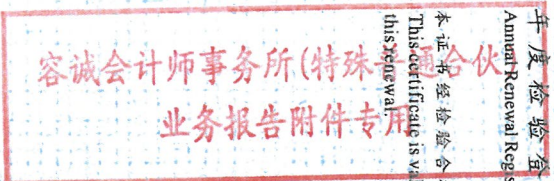 容诚会计师事务所(特殊普通合伙
业务报告附件专用
年度检验登
Annual Renewal Regis
本证书经检验合
This certificate is va
this renewal.